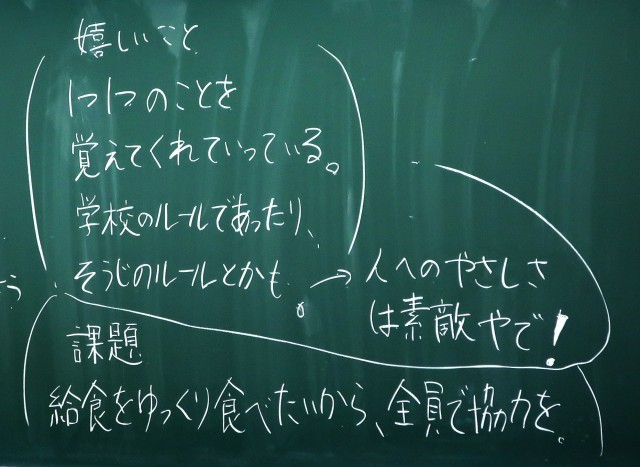 嬉しいこと
1つ1つのことを
覚えてくれていっている。
学校のルールであったり、
そうじのルールとかも。
→人へのやさしさ
は素敵やで!
課題
給食をゆっくり食べたいから、全員で協力を。